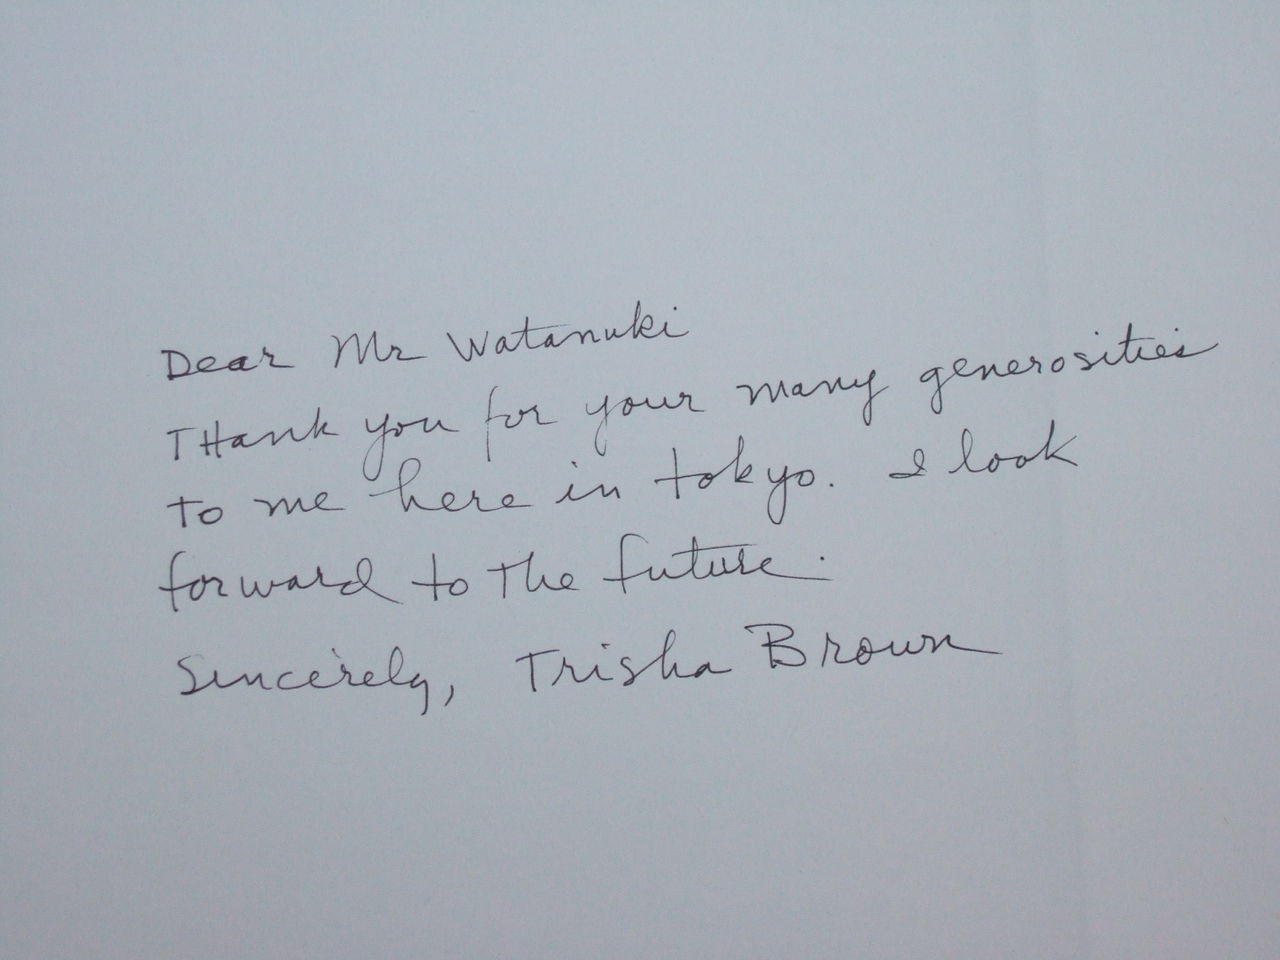 Dear Mr Watanuki
THank you for your many generosities
to me here in tokyo. I look
forward to the future.
Sincerely, Trisha Brown